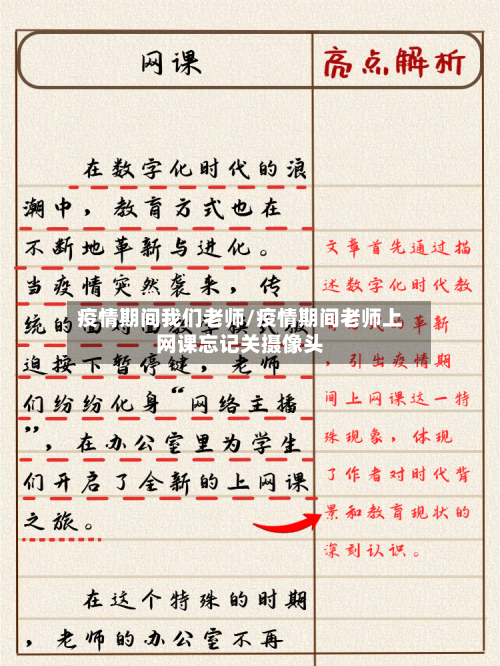 网课
亮点解析
在数字化时代的浪
潮中，教育方式也在
不断地革新与进化。
当疫情突然袭来，传
统的
迫按下暂停键，老师
们纷纷化身“网络主播
”，在办公室里为学生
们开启了全新的上网课
之旅。
在这个特殊的时期
，老师的办公室不再
文章首先通过描
述数字化时代教
革新
，引出疫情期
间上网课这一特
殊现象，体现
了作者对时代背
景和教育现状的
深刻认识。
疫情期间我们老师/疫情期间老师上
网课忘记关摄像头